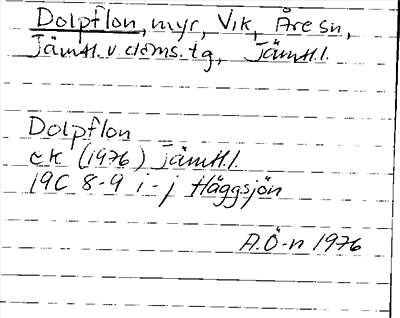 Dolpflon, myr, Vik, Åre sn,
Jämtl. v. doms. tg, Jämtl.l.
Dolpflon
ek (1976) Jämtl.l.
19C 8-9 i-j Häggsjön
A.Ö-n 1976